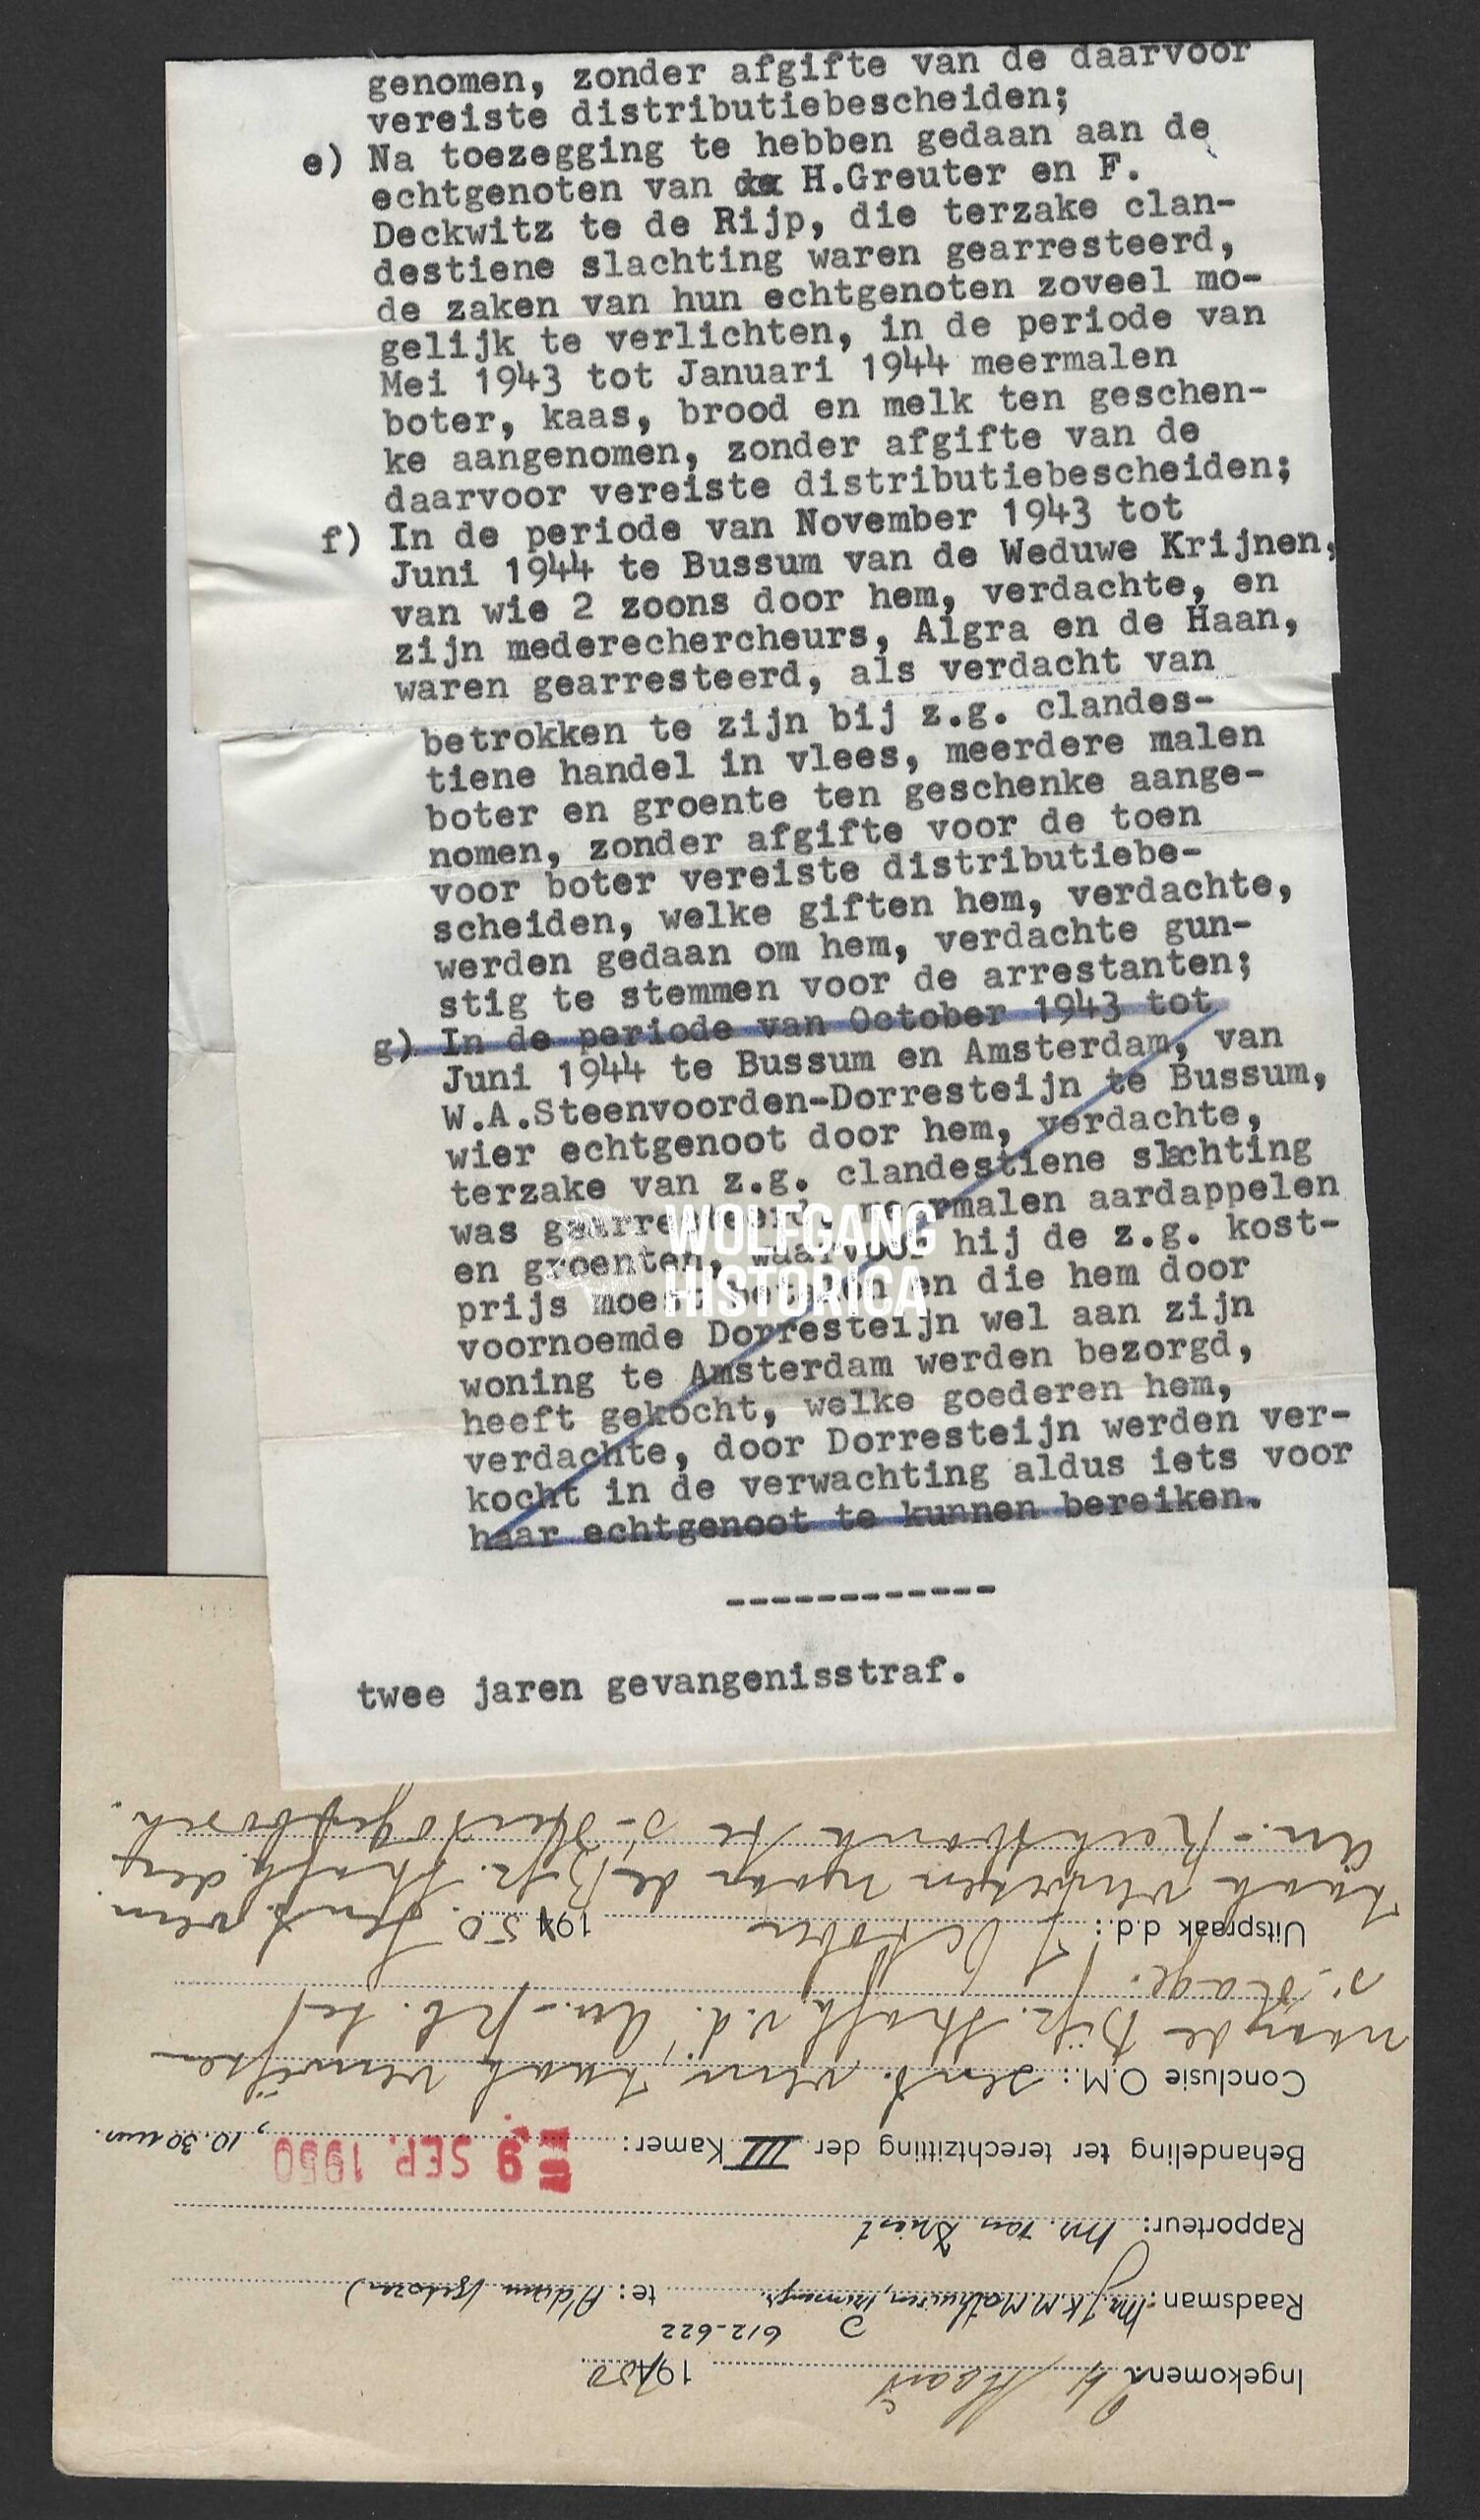 genomen, zonder afgifte van de daarvoor
vereiste distributiebescheiden;
e) Na toezegging te hebben gedaan aan de
echtgenoten van H.Greuter en F.
Deckwitz te de Rijp, die terzake clan-
destiene slachting waren gearresteerd,
de zaken van hun echtgenoten zoveel mo-
gelijk te verlichten, in de periode van
Mei 1943 tot Januari 1944 meermalen
boter, kaas, brood en melk ten geschen-
ke aangenomen, zonder afgifte van de
daarvoor vereiste distributiebescheiden;
f) In de periode van November 1943 tot
Juni 1944 te Bussum van de Weduwe Krijnen,
van wie 2 zoons door hem, verdachte, en
zijn mederechercheurs, Algra en de Haan,
waren gearresteerd, als verdacht van
betrokken te zijn bij z.g. clandes-
tiene handel in vlees, meerdere malen
boter en groente ten geschenke aange-
nomen, zonder afgifte voor de toen
voor boter vereiste distributiebe-
scheiden, welke giften hem, verdachte,
werden gedaan om hem, verdachte gun-
stig te stemmen voor de arrestanten;
g) In de periode van October 1943 tot
Juni 1944 te Bussum en Amsterdam, van
W.A.Steenvoorden-Dorresteijn te Bussum,
wier echtgenoot door hem, verdachte,
terzake van z.g. clandestiene slachting
was gearresteerd, meermalen aardappelen
en groenten, waarvoor hij de z.g. kost-
prijs moest betalen en die hem door
voornoemde Dorresteijn wel aan zijn
woning te Amsterdam werden bezorgd,
heeft gekocht, welke goederen hem,
verdachte, door Dorresteijn werden ver-
kocht in de verwachting aldus iets voor
haar echtgenoot te kunnen bereiken.
------------
twee jaren gevangenisstraf.
WOLFGANG
HISTORICA
Ingekomen: Maart 1950
612-622
Raadsman: Mr. J.K.M. Mathuisen, te: A'dam
Rapporteur: Mr. van
Behandeling ter terechtzitting der III Kamer: 9 SEP. 1950, 10.30 uur.
Conclusie O.M.: zaak verwijzen
naar de Bijz. Strafk. v.d. Arr.-Rb. te
's-Hage.
Uitspraak d.d.: October 1950.
zaak verwezen naar de Bijz. Strafk. der
Arr.-Rechtbank te 's-Hertogenbosch.